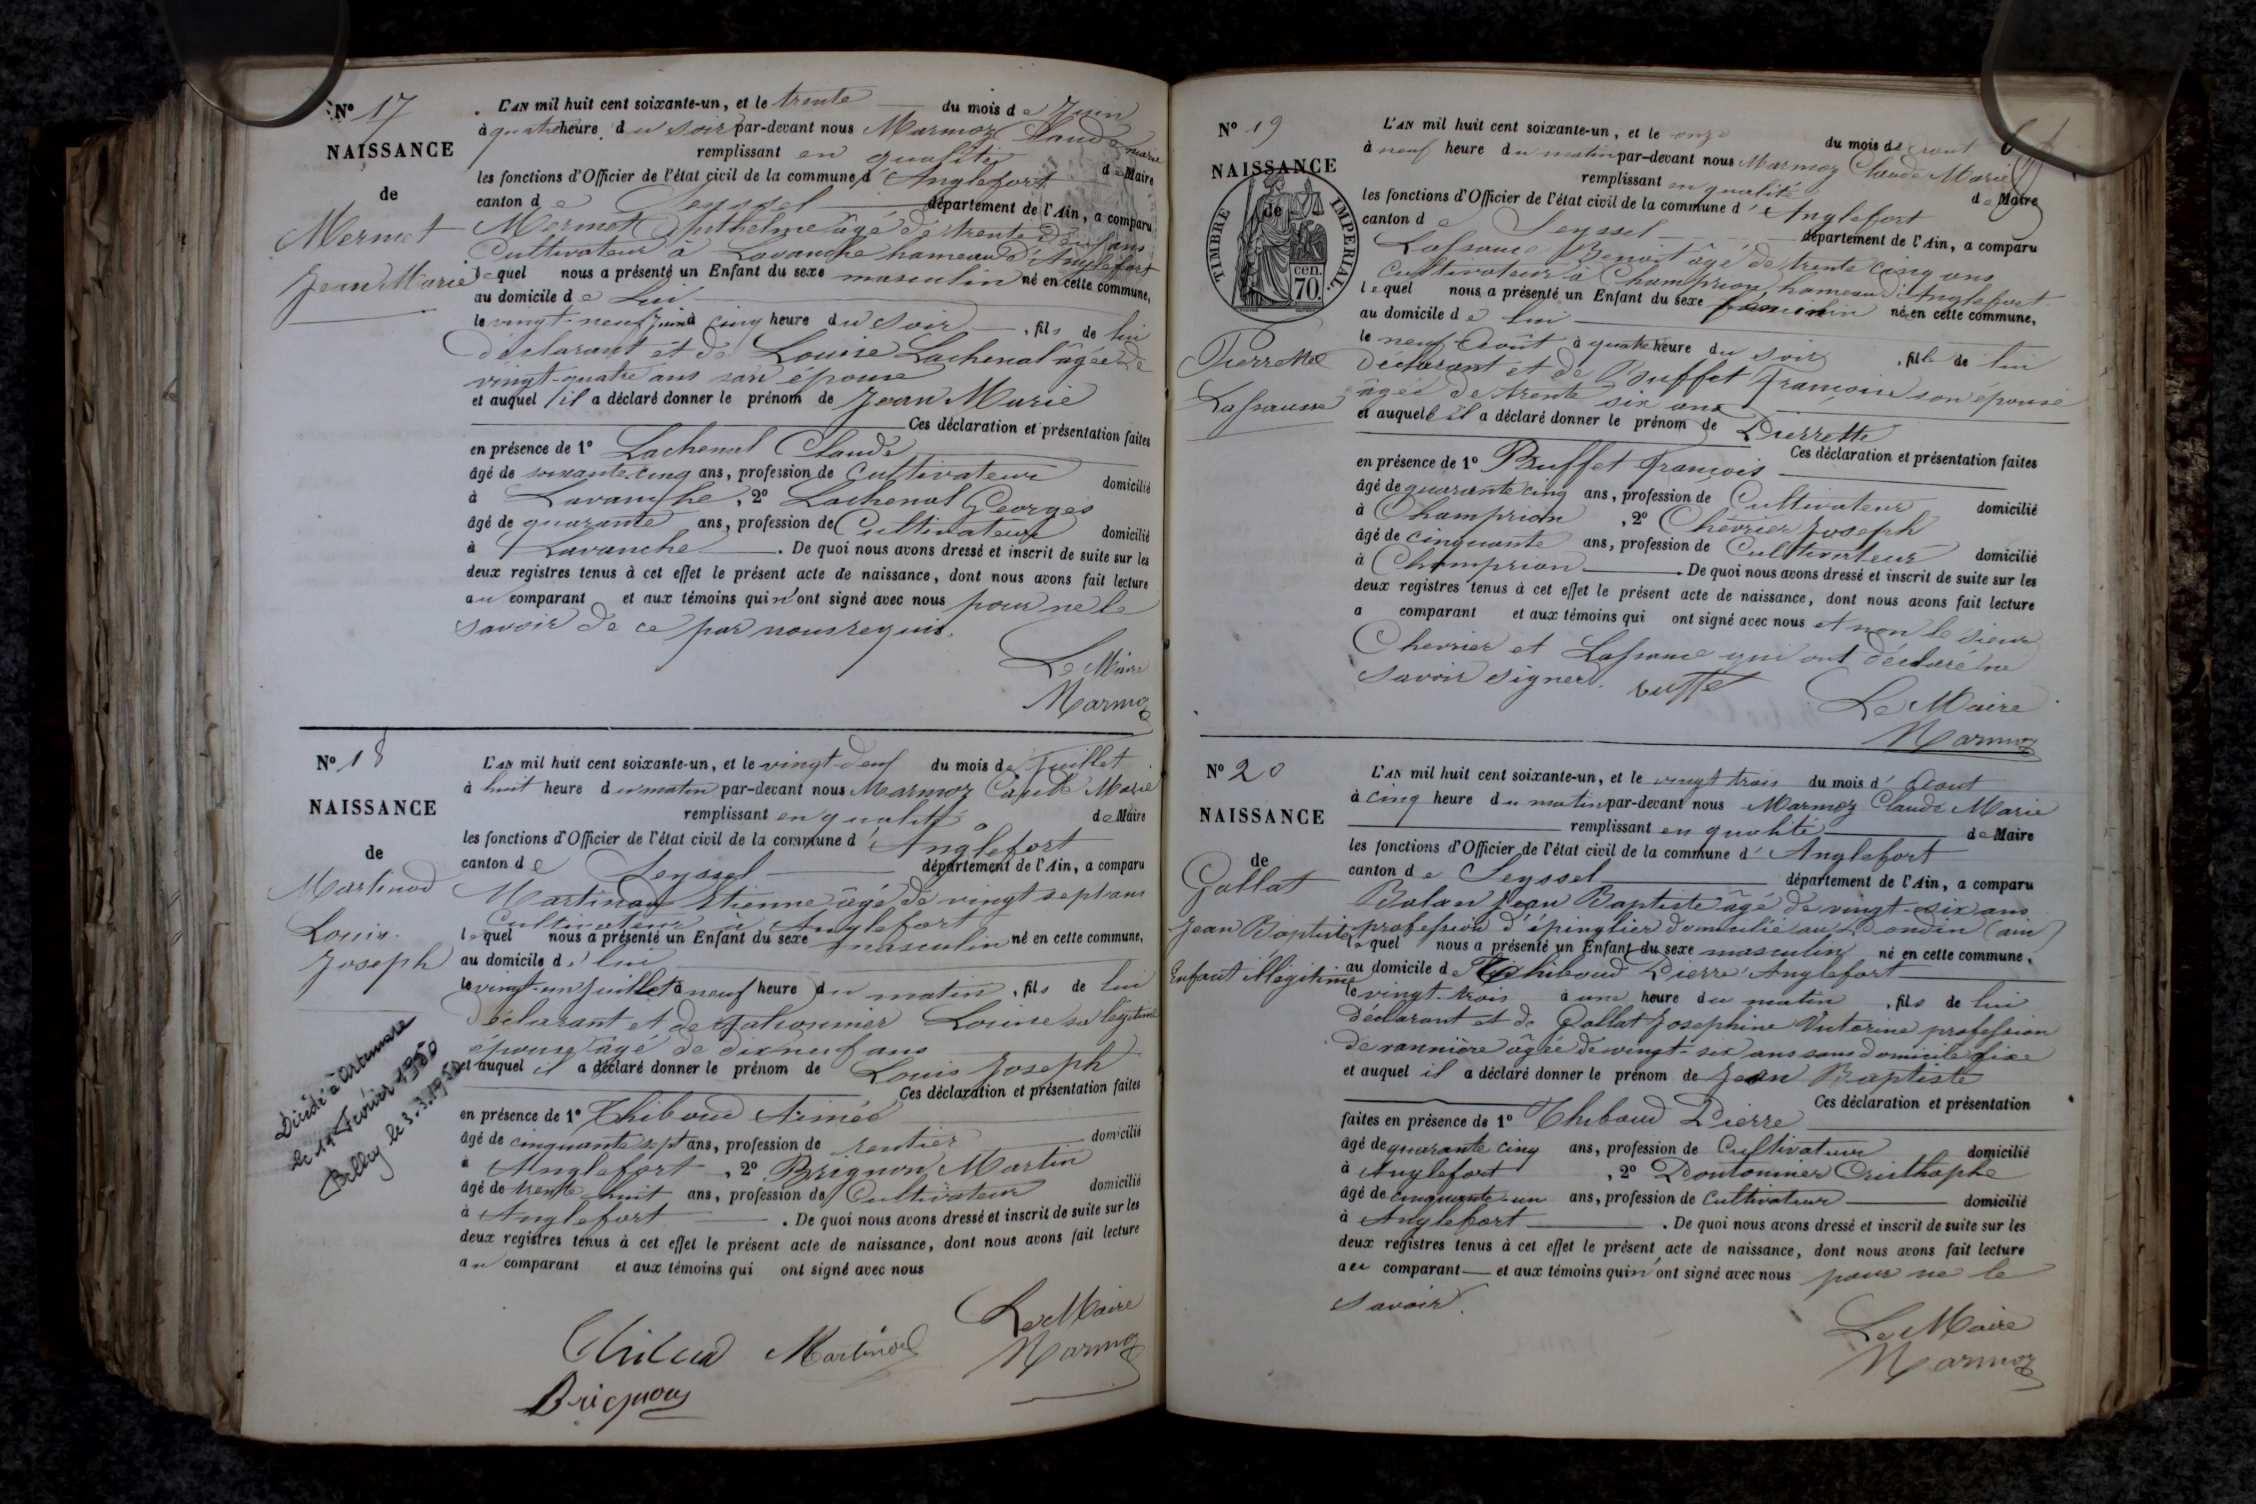 N° 17
NAISSANCE
de
Mermet
Jean Marie
L'AN mil huit cent soixante-un, et le trente du mois de Juin
à quatre heure du soir par-devant nous Marmoz Claude Marie
remplissant en qualité de Maire
les fonctions d'Officier de l'état civil de la commune d'Anglefort
canton de Seyssel département de l'Ain, a comparu
Mermet Anthelme âgé de trente deux ans
Cultivateur à Lavanche hameau d'Anglefort
lequel nous a présenté un Enfant du sexe masculin né en cette commune,
au domicile de Lui
le vingt-neuf Juin à cinq heure du soir, fils de lui
déclarant et de Louise Lachenal âgée de
vingt-quatre ans son épouse
et auquel il a déclaré donner le prénom de Jean Marie
Ces déclaration et présentation faites
en présence de 1° Lachenal Claude
âgé de soixante cinq ans, profession de Cultivateur domicilié
à Lavanche, 2° Lachenal Georges
âgé de quarante ans, profession de Cultivateur domicilié
à Lavanche. De quoi nous avons dressé et inscrit de suite sur les
deux registres tenus à cet effet le présent acte de naissance, dont nous avons fait lecture
au comparant et aux témoins qui n'ont signé avec nous pour ne le
savoir de ce par nous requis.
Le Maire
Marmoz
N° 18
NAISSANCE
de
Martinod
Louis
Joseph
Décédé à Artemare
le 11 Février 1950
Belley le 3.3.1950
L'AN mil huit cent soixante-un, et le vingt-deux du mois de Juillet
à huit heure du matin par-devant nous Marmoz Claude Marie
remplissant en qualité de Maire
les fonctions d'Officier de l'état civil de la commune d'Anglefort
canton de Seyssel département de l'Ain, a comparu
Martinod Etienne âgé de vingt sept ans
Cultivateur à Anglefort
lequel nous a présenté un Enfant du sexe masculin né en cette commune,
au domicile de lui
le vingt-un Juillet à neuf heure du matin, fils de lui
déclarant et de Louise sa légitime
épouse âgé de dix neuf ans
et auquel il a déclaré donner le prénom de Louis Joseph
Ces déclaration et présentation faites
en présence de 1° Thiboud Aimée
âgé de cinquante sept ans, profession de rentier domicilié
à Anglefort, 2° Brignon Martin
âgé de trente huit ans, profession de Cultivateur domicilié
à Anglefort. De quoi nous avons dressé et inscrit de suite sur les
deux registres tenus à cet effet le présent acte de naissance, dont nous avons fait lecture
au comparant et aux témoins qui ont signé avec nous
Le Maire
Thiboud Martinod Marmoz
Brignon
N° 19
NAISSANCE
de
TIMBRE IMPERIAL.
cen.
70
Pierrette
L'AN mil huit cent soixante-un, et le onze du mois de aout
à neuf heure du matin par-devant nous Marmoz Claude Marie
remplissant en qualité de Maire
les fonctions d'Officier de l'état civil de la commune d'Anglefort
canton de Seyssel département de l'Ain, a comparu
Benoit âgé de trente cinq ans
Cultivateur à Champrion hameau d'Anglefort
lequel nous a présenté un Enfant du sexe féminin né en cette commune,
au domicile de lui
le neuf Août à quatre heure du soir, fille de lui
Déclarant et de Buffet Françoise son épouse
âgée de trente six ans
et auquelle il a déclaré donner le prénom de Pierrette
Ces déclaration et présentation faites
en présence de 1° Buffet François
âgé de quarante cinq ans, profession de Cultivateur domicilié
à Champrion, 2° Chevrier Joseph
âgé de cinquante ans, profession de Cultivateur domicilié
à Champrion. De quoi nous avons dressé et inscrit de suite sur les
deux registres tenus à cet effet le présent acte de naissance, dont nous avons fait lecture
a comparant et aux témoins qui ont signé avec nous et non le sieur
Chevrier et qui ont déclaré ne
savoir signer. buffet
Le Maire
Marmoz
N° 20
NAISSANCE
de
Gallat
Jean Baptiste
Enfant illégitime
L'AN mil huit cent soixante-un, et le vingt trois du mois d'Aout
à cinq heure du matin par-devant nous Marmoz Claude Marie
remplissant en qualité de Maire
les fonctions d'Officier de l'état civil de la commune d'Anglefort
canton de Seyssel département de l'Ain, a comparu
Balan Jean Baptiste âgé de vingt-six ans
profession d'épinglier domicilié au (ain)
lequel nous a présenté un Enfant du sexe masculin né en cette commune,
au domicile de Thiboud Pierre Anglefort
le vingt-trois à une heure du matin, fils de lui
déclarant et de Gallat Josephine Victorine profession
de vannière âgée de vingt-six ans sans domicile fixe
et auquel il a déclaré donner le prénom de Jean Baptiste
Ces déclaration et présentation
faites en présence de 1° Thiboud Pierre
âgé de quarante cinq ans, profession de Cultivateur domicilié
à Anglefort, 2°
âgé de cinquante-un ans, profession de Cultivateur domicilié
à Anglefort. De quoi nous avons dressé et inscrit de suite sur les
deux registres tenus à cet effet le présent acte de naissance, dont nous avons fait lecture
au comparant et aux témoins qui n'ont signé avec nous pour ne le
savoir.
Le Maire
Marmoz